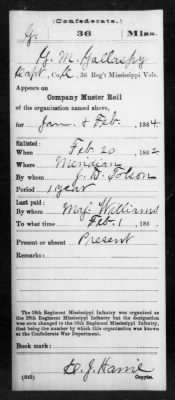 (Confederate.)
G. 36 Miss.
G. M. Gallaspy
Capt, Co. K, 36 Reg't Mississippi Vols.
Appears on
Company Muster Roll
of the organization named above,
for Jan. & Feb., 1864
Enlisted:
When Feb 20, 1862
Where Meridian
By whom J. D. Tolson
Period 1 year
Last paid:
By whom Maj Williams
To what time Feb. 1, 186
Present or absent Present
Remarks:
The 36th Regiment Mississippi Infantry was organized as
Regiment Mississippi Infantry but the designation
was changed to the 36th Regiment Mississippi Infantry,
that being the number by which this organization was known at
the Confederate War Department.
Book mark:
(642) Copyist.